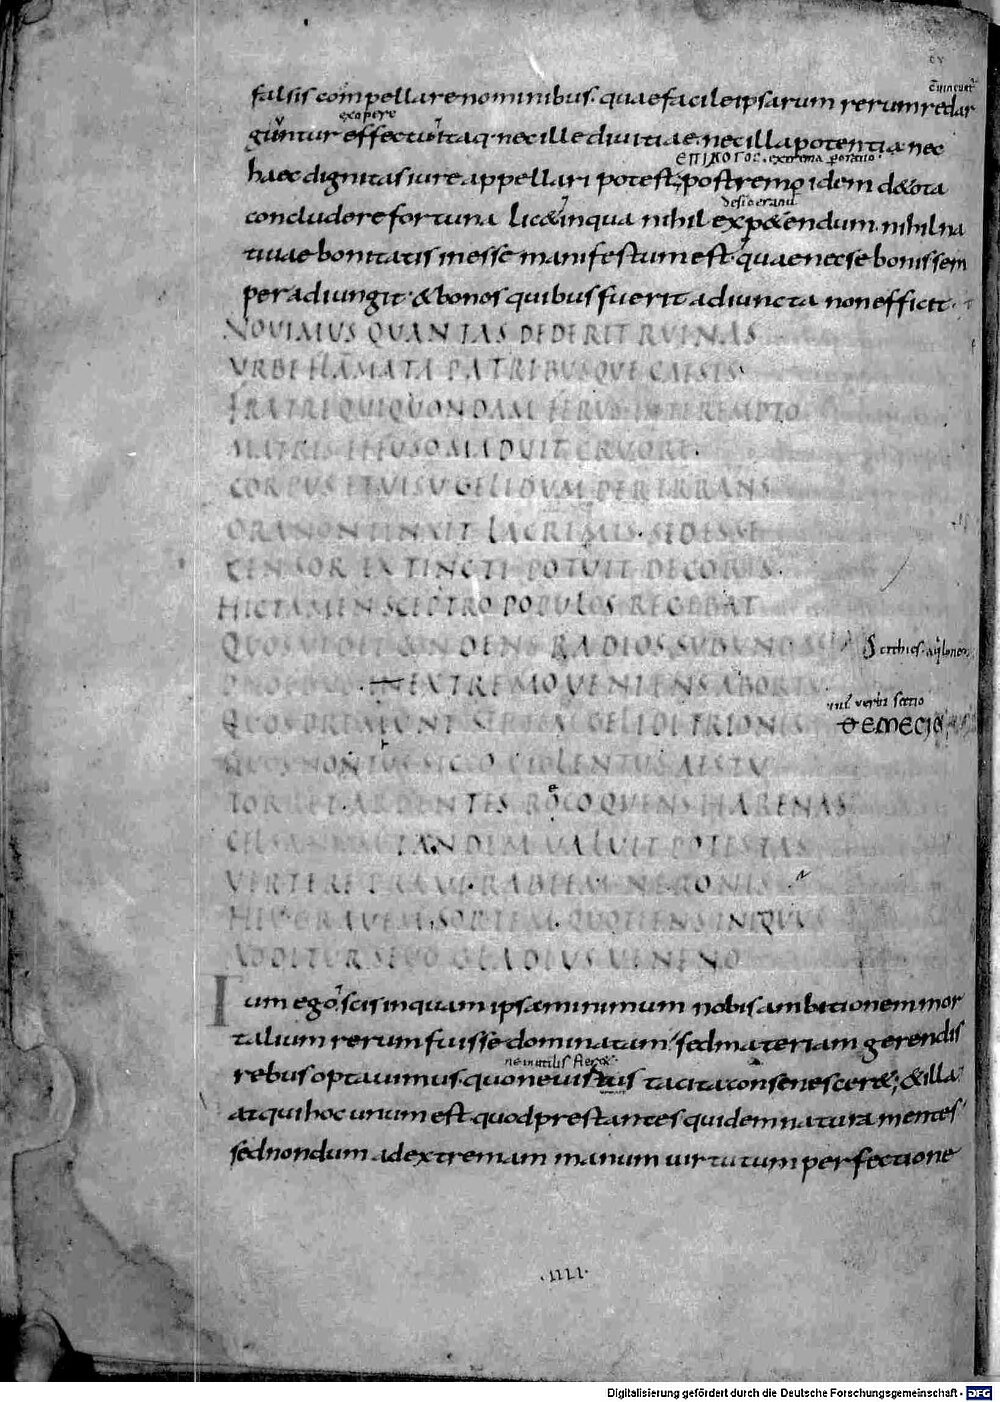 falsis compellare nominibus. quae facile ipsarum rerum redar
ex opere
guntur effectu itaq; nec ille diuitiae. nec illa potentia nec
ΕΠΙΛΟΓΟΣ. extrema
haec dignitas iure appellari potest; postremo idem de tota
desiderandum
concludere fortuna licet inqua nihil expetendum. nihil na
tiuae bonitatis inesse manifestum est. quae nec se bonis sem
per adiungit. & bonos quibus fuerit adiuncta non efficit.
NOUIMUS QUANTAS DEDERIT RUINAS
URBE FLAMMATA PATRIBUSQUE CAESIS
FRATRE QUI QUONDAM FERUS INTEREMPTO
MATRIS EFFUSO MADUIT CRUORE.
CORPUS ET UISU GELIDUM PERERRANS
ORA NON TINXIT LACRIMIS. SED ESSE
CENSOR EXTINCTI POTUIT DECORIS.
HIC TAMEN SCEPTRO POPULOS REGEBAT
QUOS UIDET CONDENS RADIOS SUB UNDAS
EXTREMO UENIENS AB ORTU
uerbi sectio
QUOS PREMUNT SEPTEM GELIDI TRIONES
QUOS NOTUS SICCO UIOLENTUS AESTU
TORRET ARDENTES RECOQUENS HARENAS
CELSA TANDEM UALUIT POTESTAS
UERTERE PRAUI RABIEM NERONIS
HEU GRAUEM SORTEM. QUOTIENS INIQUUS
ADDITUR SEUO GLADIUS UENENO
Tum ego. scis inquam ipsa minimum nobis ambitionem mor
talium rerum fuisse dominatum. sed materiam gerendis
ne inutilis
rebus optauimus. quo ne uistus tacita consenesceret; & illa
atqui hoc unum est quod prestantes quidem natura mentes
sed nondum ad extremam manum uirtutum perfectione
.IIII.
Digitalisierung gefördert durch die Deutsche Forschungsgemeinschaft - DFG